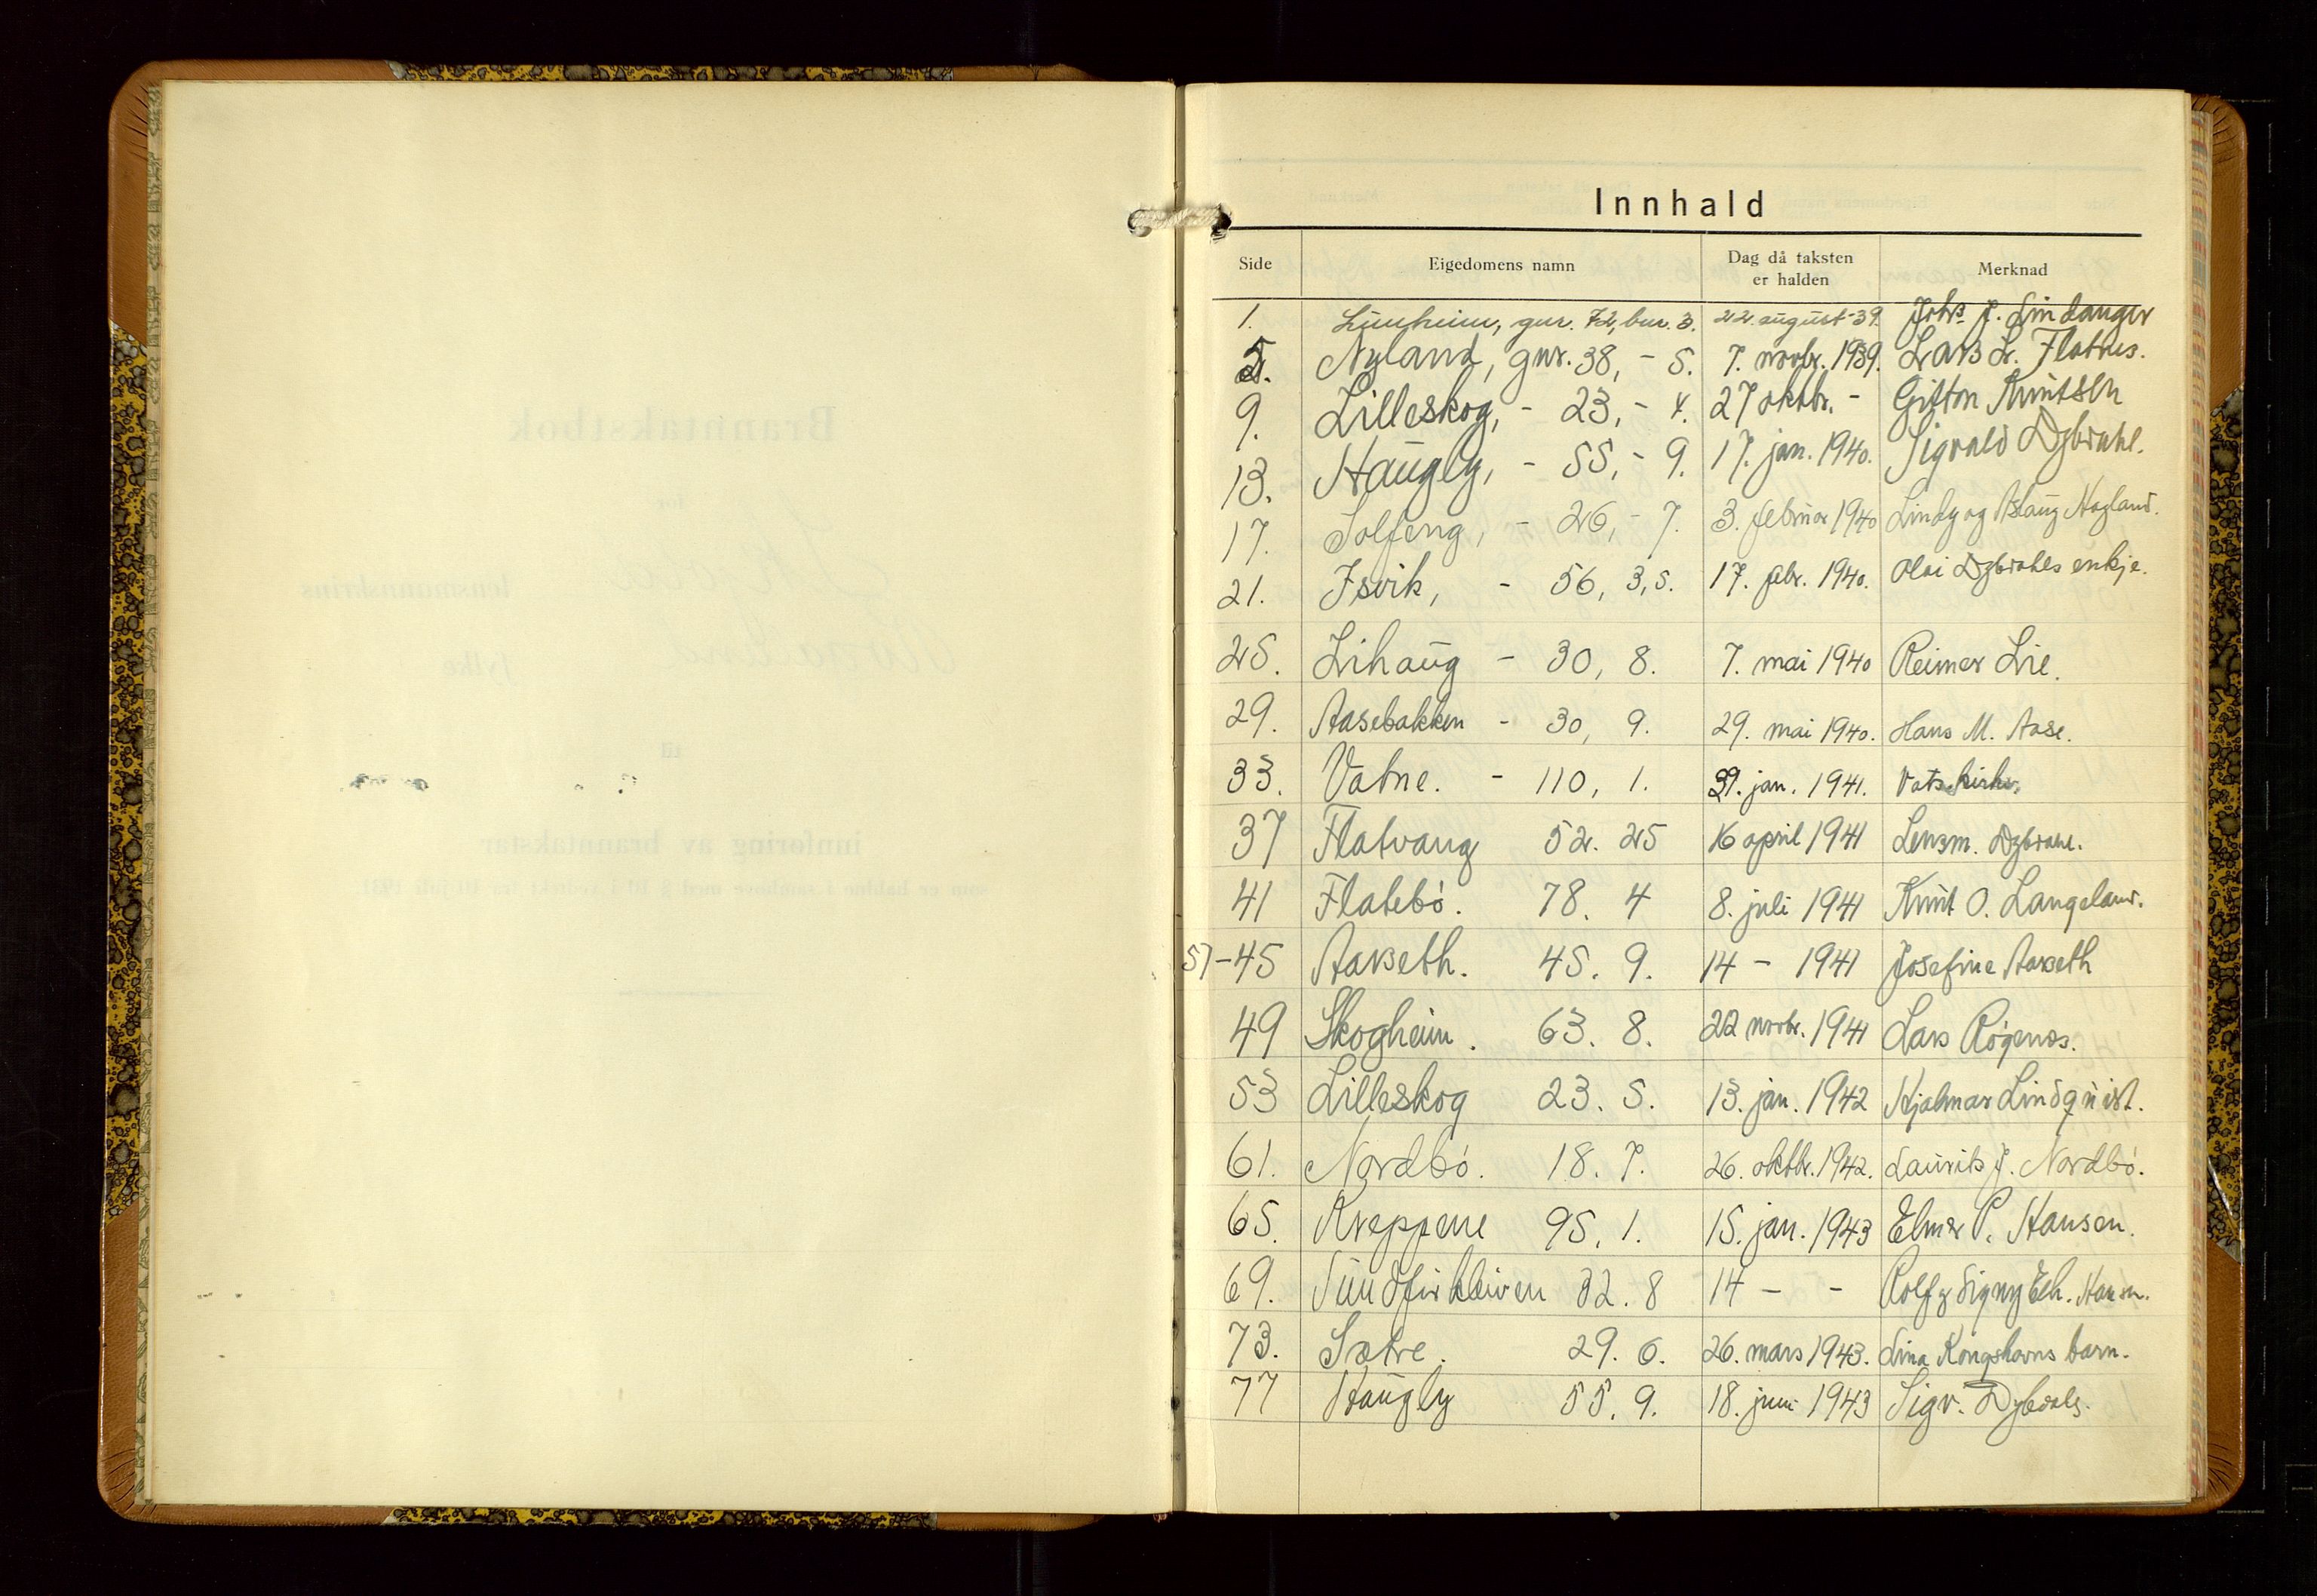 Innhald
Side Eigedomens namn Dag då taksten er halden Merknad
1. gnr. 72, bnr. 3. 22. august - 39. Johs. J. Lindanger
5. Nyland, gnr. 38, - 5. 7. novbr. 1939. Lars L. Flatnes.
9. Lilleskog, - 23, - 4. 27 oktbr. - Gitton Knutsen
13. Haugly, - 55, - 9. 17. jan. 1940. Sigvald Dybdahl.
17. Solfeng, - 26, - 7. 3. februar 1940 Lindy og Aslaug Hagland.
21. Isvik, - 56, 3,5. 17. febr. 1940. Olai Dybdahls enkje.
25. Lihaug - 30, 8. 7. mai 1940 Reimer Lie.
29. Aasebakken - 30, 9. 29. mai 1940. Hans M. Aase.
33. Vatne. - 110, 1. jan. 1941. Vats kirke.
37 Flatvang 52. 25 16 april 1941 Lensm. Dybdahl.
41 Flatebö. 78. 4 8. juli 1941 Knut O. Langeland.
57-45 Aarseth. 45. 9. 14 - 1941 Josefine Aarseth
49 Skogheim. 63. 8. 22 novbr. 1941 Lars Rögenes.
53 Lilleskog 23. 5. 13. jan. 1942 Hjalmar Lindquist.
61. Nordbö. 18. 7. 26. oktbr. 1942. Laurits J. Nordbö.
65. Kreppene 95. 1. 15. jan. 1943 Elmer P. Hansen.
69. 32. 8 14 - - Rolf g Signy Elh. Hansen.
73. Sætre. 29. 6. 26. mars 1943. Lina Kongshavns barn.
77 Haugly 55. 9. 18. juni 1943 Sigv. Dybdahl.